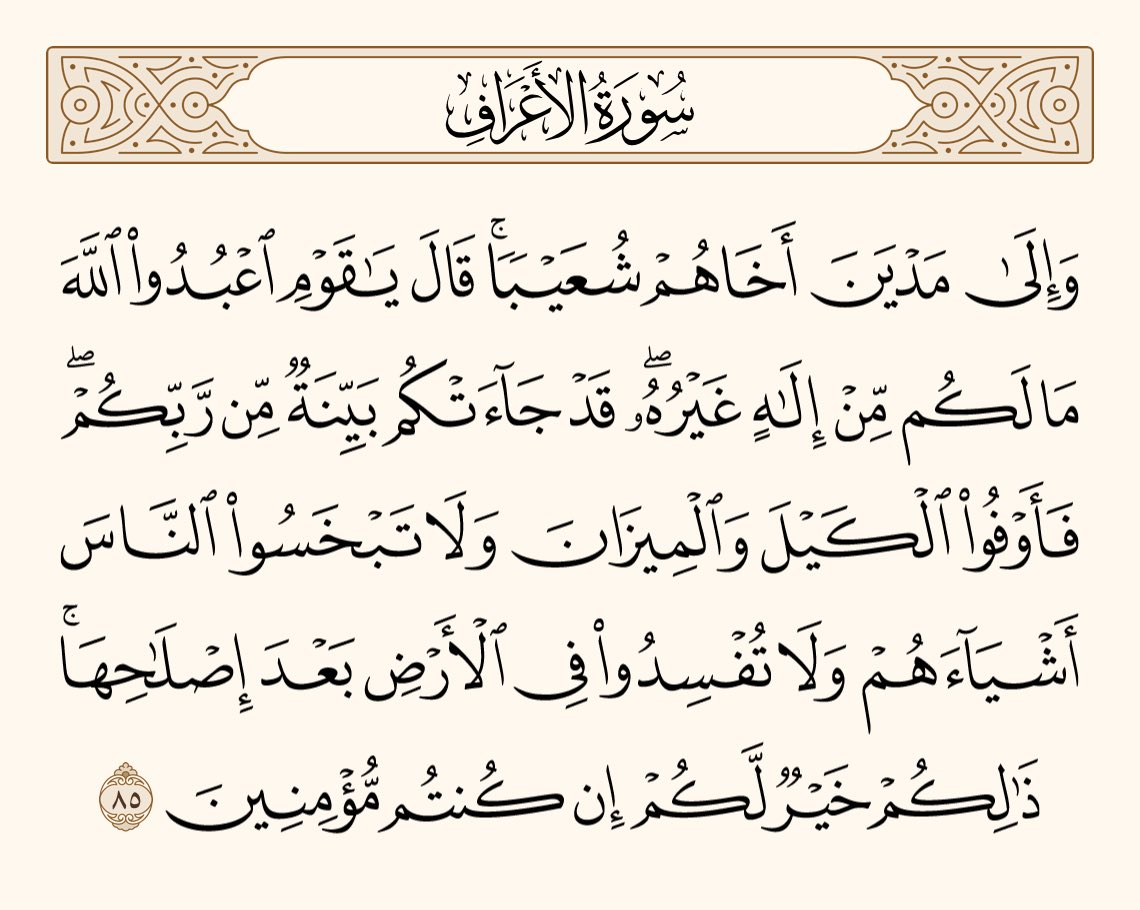 سُورَةُ الأَعْرَافِ
وَإِلَىٰ مَدْيَنَ أَخَاهُمْ شُعَيْبًاۚ قَالَ يَـٰقَوْمِ ٱعْبُدُوا۟ ٱللَّهَ
مَا لَكُم مِّنْ إِلَـٰهٍ غَيْرُهُۥۖ قَدْ جَآءَتْكُم بَيِّنَةٌ مِّن رَّبِّكُمْۖ
فَأَوْفُوا۟ ٱلْكَيْلَ وَٱلْمِيزَانَ وَلَا تَبْخَسُوا۟ ٱلنَّاسَ
أَشْيَآءَهُمْ وَلَا تُفْسِدُوا۟ فِى ٱلْأَرْضِ بَعْدَ إِصْلَـٰحِهَاۚ
ذَٰلِكُمْ خَيْرٌ لَّكُمْ إِن كُنتُم مُّؤْمِنِينَ ٨٥